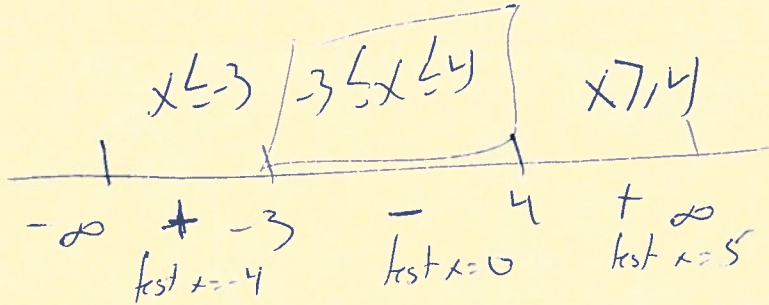 x≤-3 -3≤x≤4 x≥4
-∞ + -3 - 4 + ∞
test x=-4 test x=0 test x=5